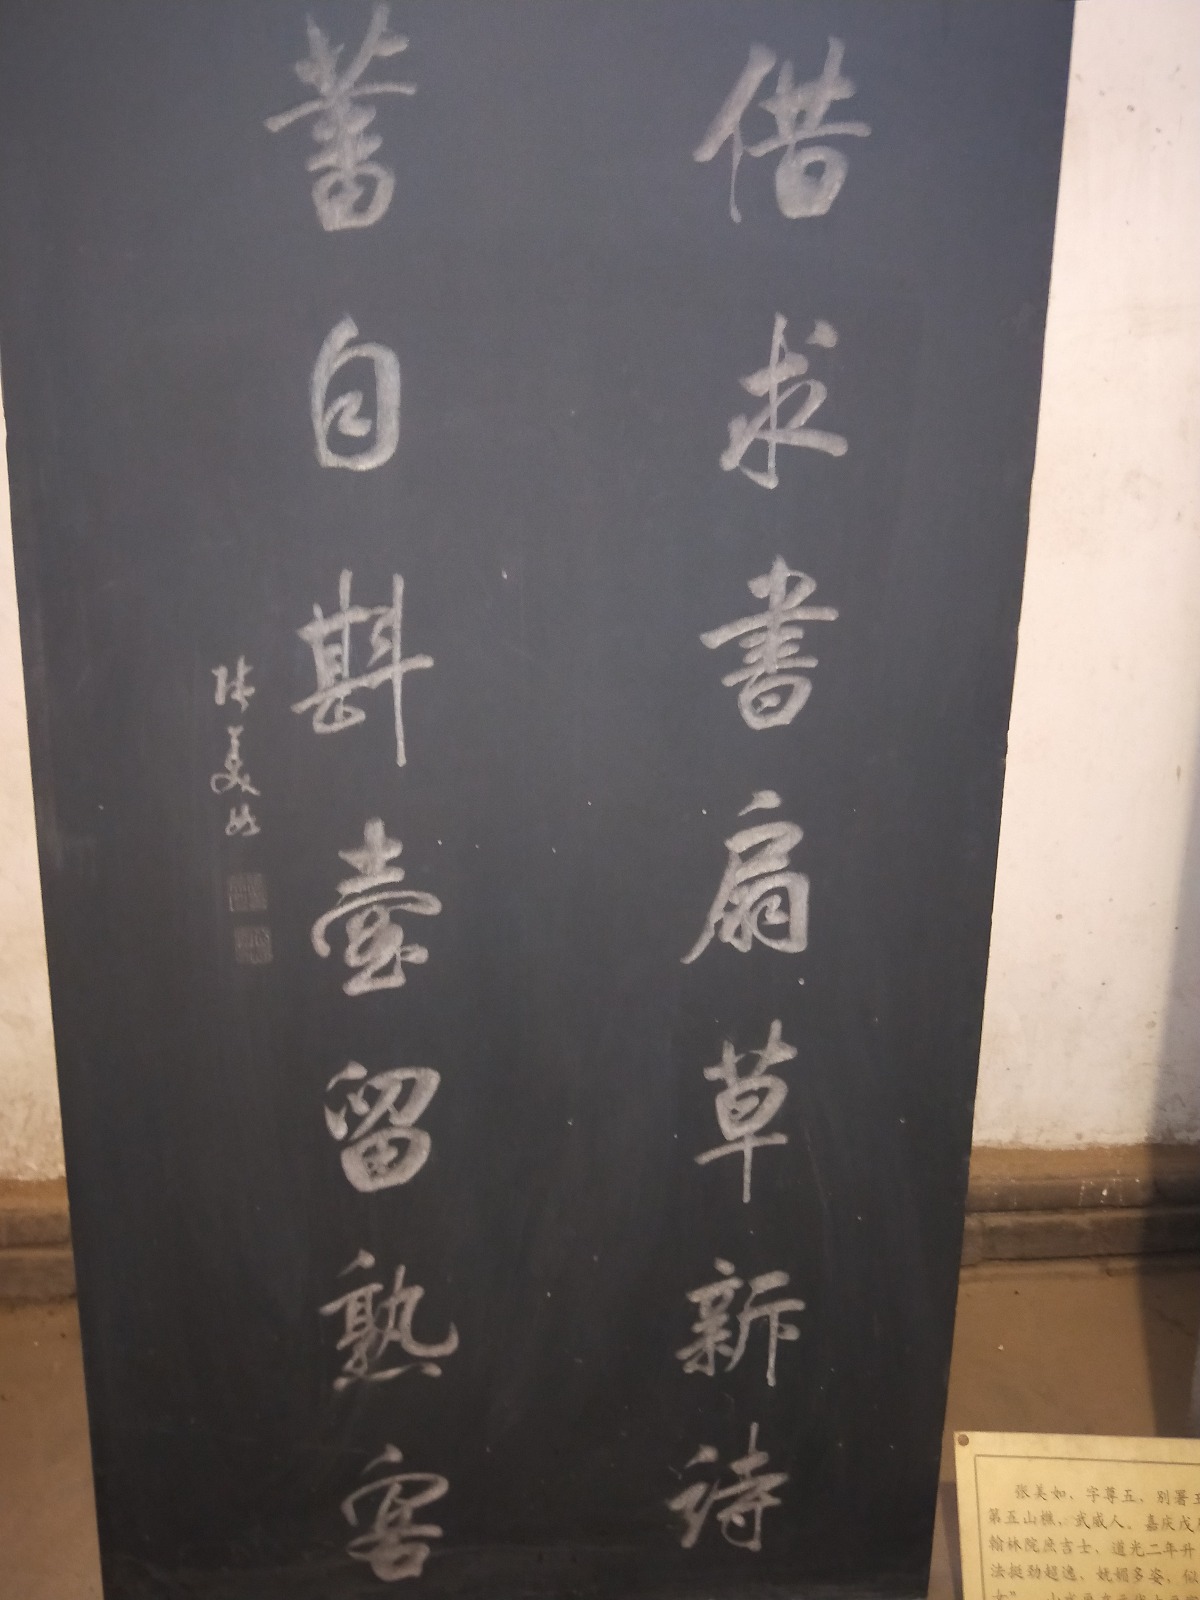 借求書扇草新詩
蓄自斟壺留熟客
張美如
张美如，字尊五，别署玉
第五山樵，武威人。嘉庆戊
翰林院庶吉士，道光二年升
法挺劲超逸，妩媚多姿，似
女”